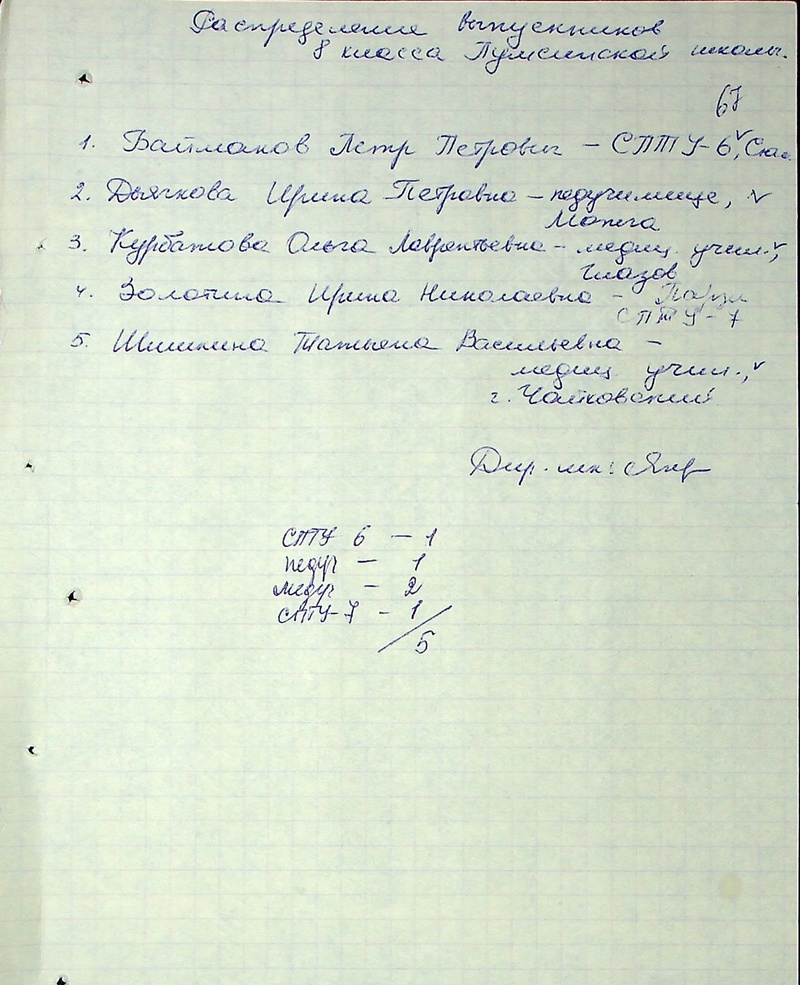 Распределение выпускников
8 класса Пумсинской школы.
67
1. Байманов Петр Петрович – СПТУ-6, Сюм.
2. Дьячкова Ирина Петровна – педучилище,
Можга
3. Курбатова Ольга Лаврентьевна – медиц. учил.,
Глазов
4. Золотина Ирина Николаевна – Парзи
СПТУ-7
5. Шишкина Татьяна Васильевна –
медиц учил.,
г. Чайковский
Дир. шк:
СПТУ 6 – 1
педуч – 1
медуч – 2
СПТУ-7 – 1
5